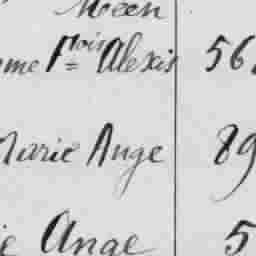 Méen
me Fçois Alexis 56
Marie Ange 89
ie Ange 5